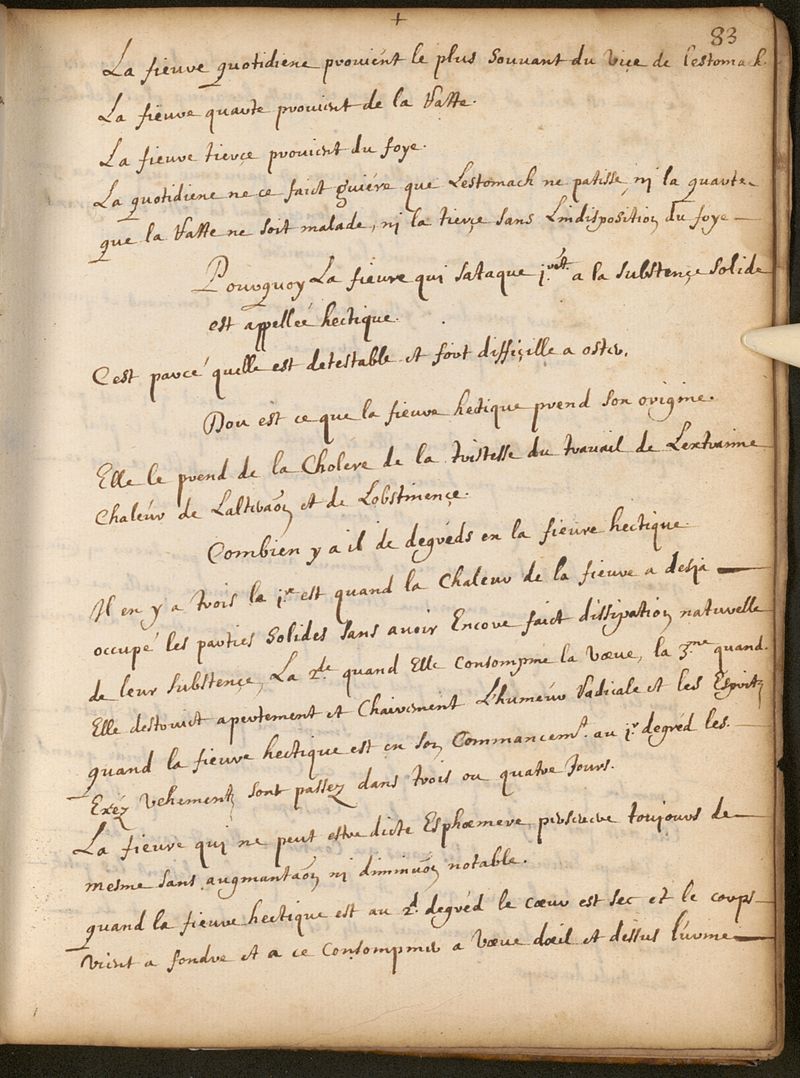 +
83
La fieuve quotidiene provient le plus souvant du viçe de lestomack
La fieuve quarte provient de la Ratte.
La fieuve tierçe provient du foye.
La quotidiene ne ce faict guiére que Lestomack ne patisse, nj la quarte
que la Ratte ne soit malade, nj la tierçe sans Lindisposition du foye
Pourquoy La fieuvre qui sataque 1.rẽt. a la substençe solide
est appelleé hectique.
C'est parcé quelle est detestable et fort diffiçille a oster.
Dou est ce que la fieuvre hectique prend son origine.
Elle le prend de la Cholére de la tristesse du travail de Lextraime
Chaleur de Lalteraõn et de Lobstinençe.
Combien y a il de degréds en la fieuvre hectique
Il en y a trois le 1.er est quand la Chaleur de la fieuve a desja
occupé les parties Solides sans avoir Encore faict dissipation naturelle
de leur substençe, La 2.de quand Elle Consompme la vœue, la 3.me quand.
Elle destruict apertement et Chairement L'humeur Radicale et les Esprits
quand la fieuvre hectique est en son Commancem.t au 1.r degréd les
Exéz vehements sont passez dans trois ou quatre Jours.
La fieuvre qui ne peut estre dicte Esphœmere persevere toujours de
mesme sans augmantaõn nj diminuõn notable.
quand la fieuvre hectique est au 2.d degréd le cœur est sec et le corps
vient a fondre et a ce Consompmer a vœue dœil et dessus l'urine